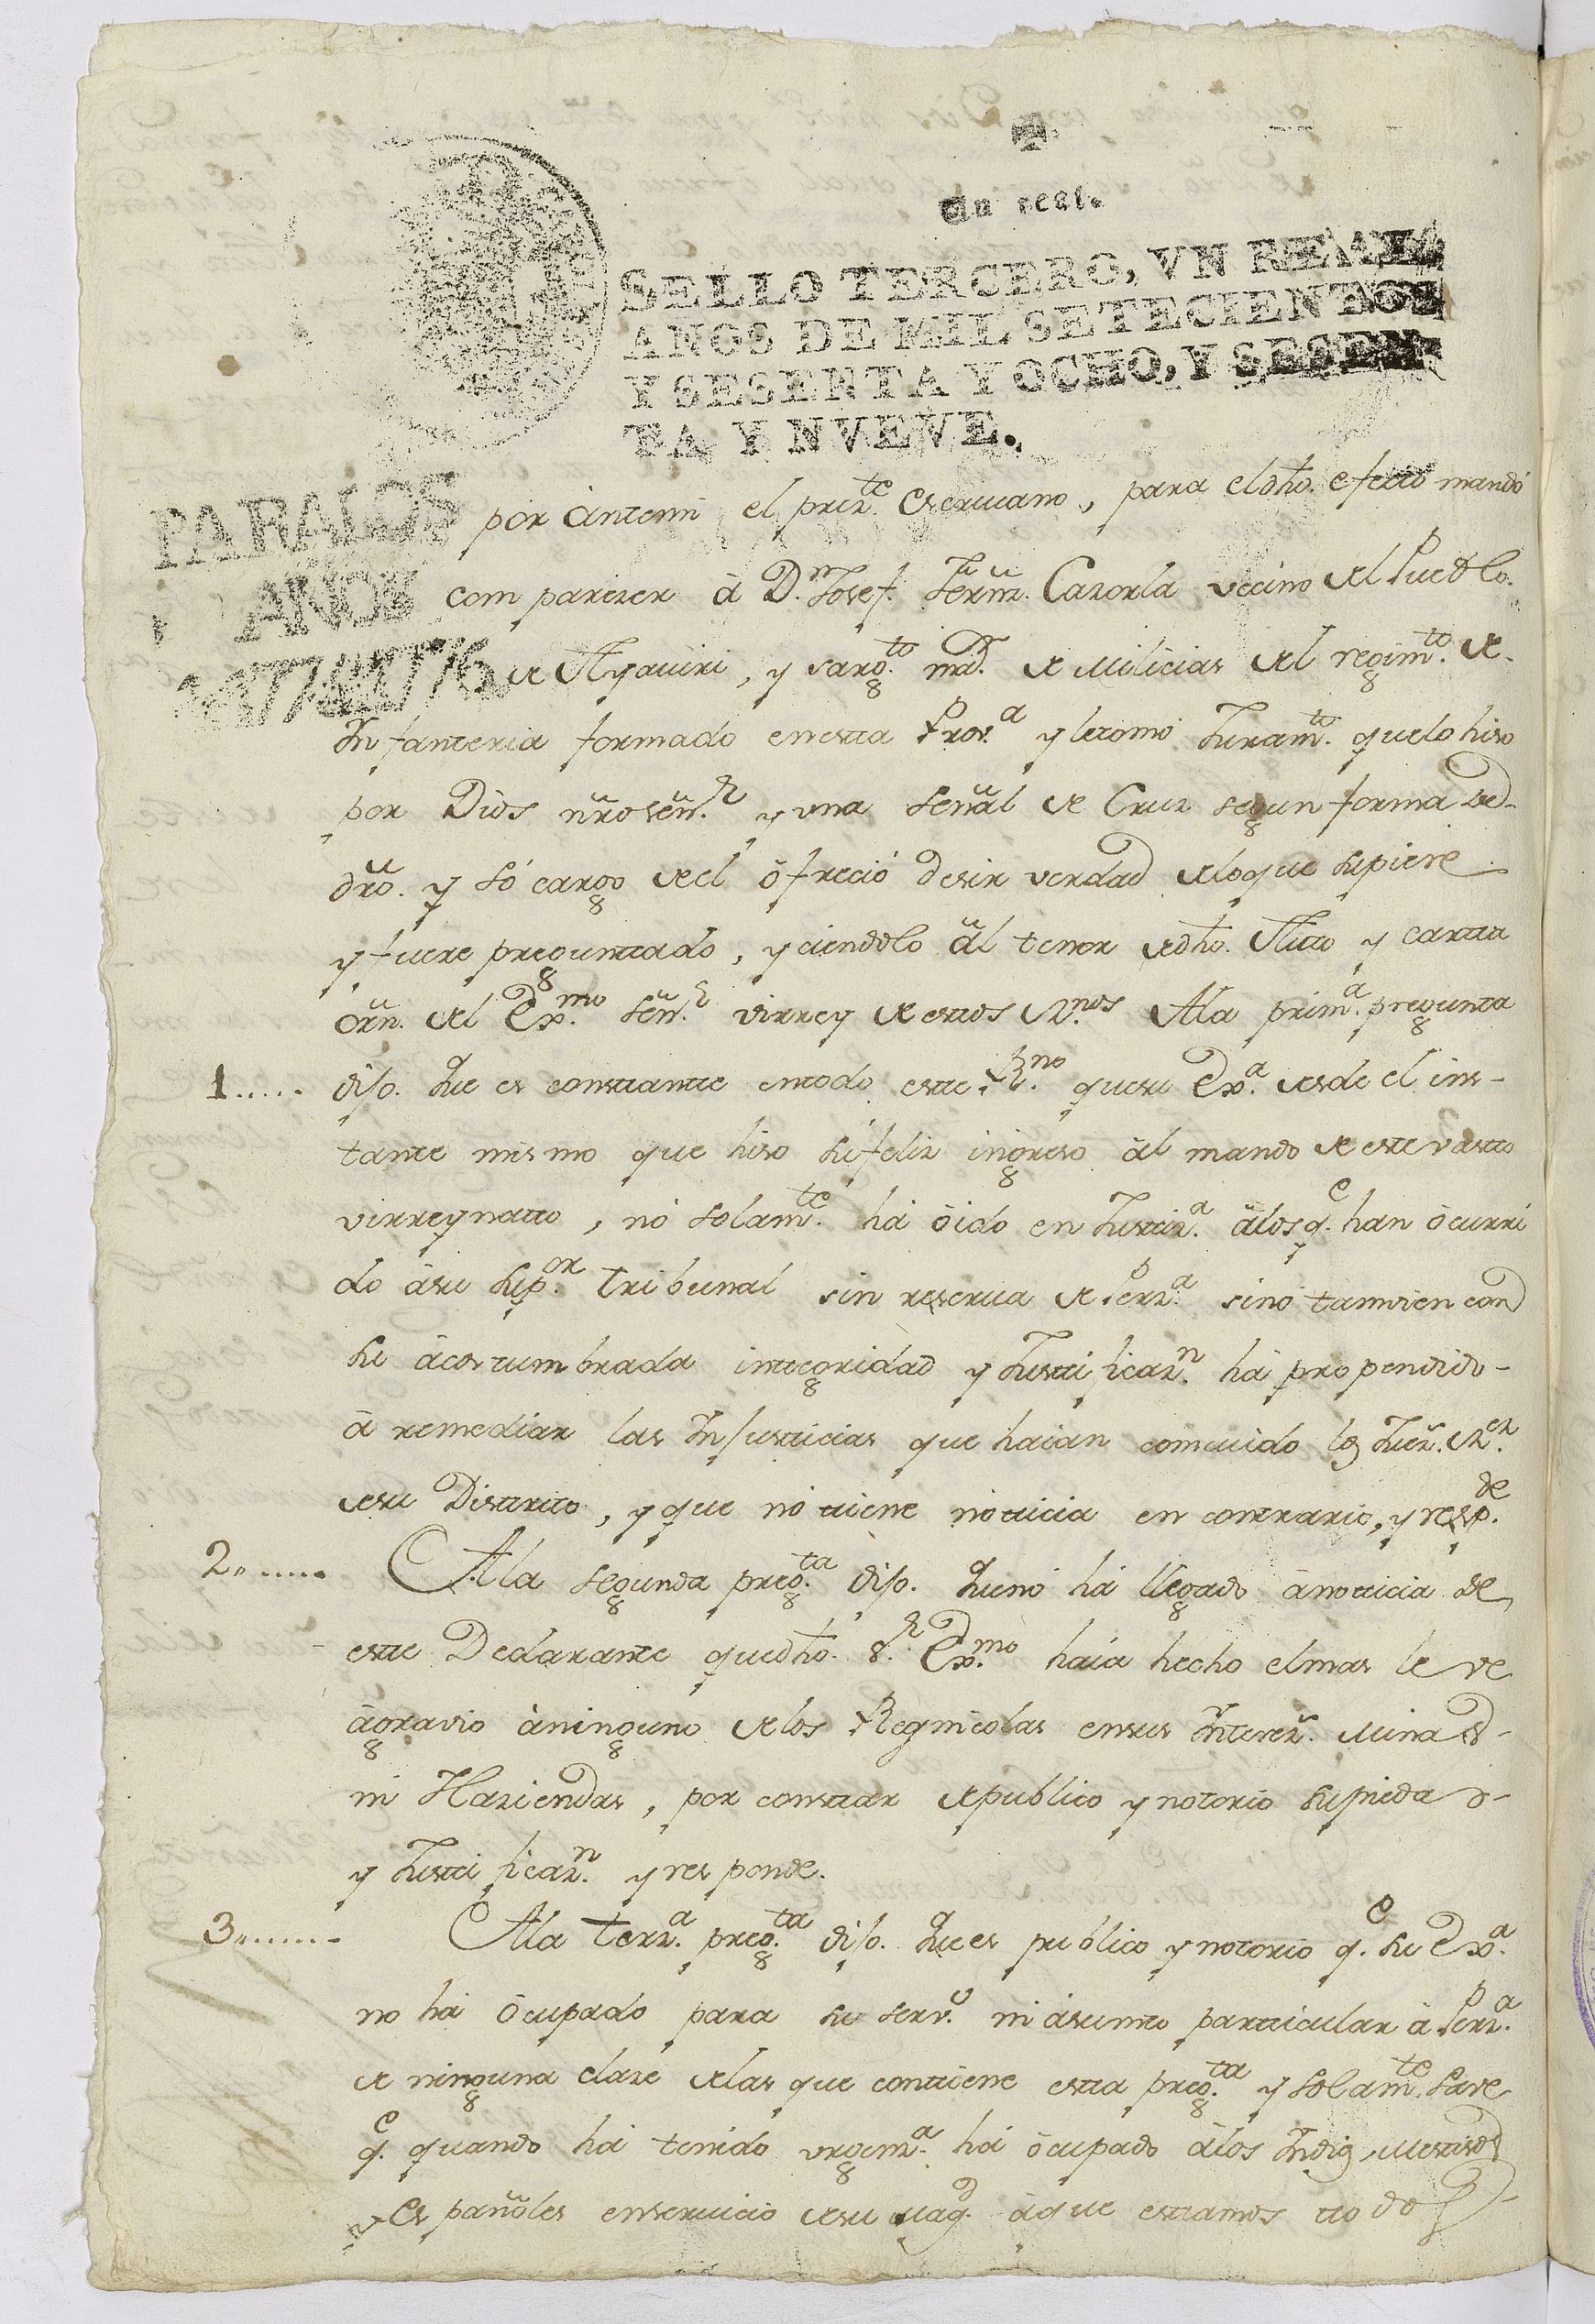 Un real.
SELLO TERCERO, VN REAL,
AÑOS DE MIL SETECIENTOS
Y SESENTA Y OCHO, Y SESEN-
TA Y NVEVE.
PARA LOS
AÑOS
por ante mi el prez.te escrivano, para el dho. efecto mandó
comparezer â D.n Josef. Fernz. Cazorla vecino del Pueblo.
de Ayaviri, y sarg.to mr. de Milicias del regim.to de
Infanteria formado en esta Prov.a y le tomó Juram.to que lo hiso
por Dios nro señ.r y una señal de Cruz segun forma de
dro. y só cargo de el ôfreció desir verdad de lo que supiere
y fuere preguntado, y ciendolo âl tenor de dho. Auto y carta
orñ. del Ex.mo señ.r virrey de estos R.nos A la prim.a pregunta
1..... dijo. Que es constante en todo este R.no que su Ex.a desde el ins-
tante mismo que hiso su feliz ingreso âl mando de este vasto
virreynatto, nó solam.te há ôido en Justiz.a â los q.e han ôcurri
do â su Sup.or Tribunal sin reserva de Perz.a sinó tamvien con
su âcostumbrada integridad y Justificaz.n há propendido-
â remediar las Injusticias que haian comitido los Juez. R.es
de su Distrito, y que nó tiene nóticia en contrario, y resp.de
2...... A la segunda preg.ta dijo. Que nó há llegado â noticia de
este Declarante que dho. S.r Ex.mo haia hecho el mas leve
âgravio â ninguno de los Regnicolas en sus Interez. Minas
ni Haziendas, por constar de publico y notorio su piedad-
y Justificaz.n y responde.
3...... A la terz.a preg.ta dijo. Que es publico y notorio q.e su Ex.a
no há ôcupado para su serv.o ni âsumto particular â Perz.a
de ninguna clase de las que contiene esta preg.ta y solam.te save
q.e quando há tenido urgenz.a há ôcupado â los Indios, Mestizos
y Españoles en servicio de su Mag.d â que estamos todos